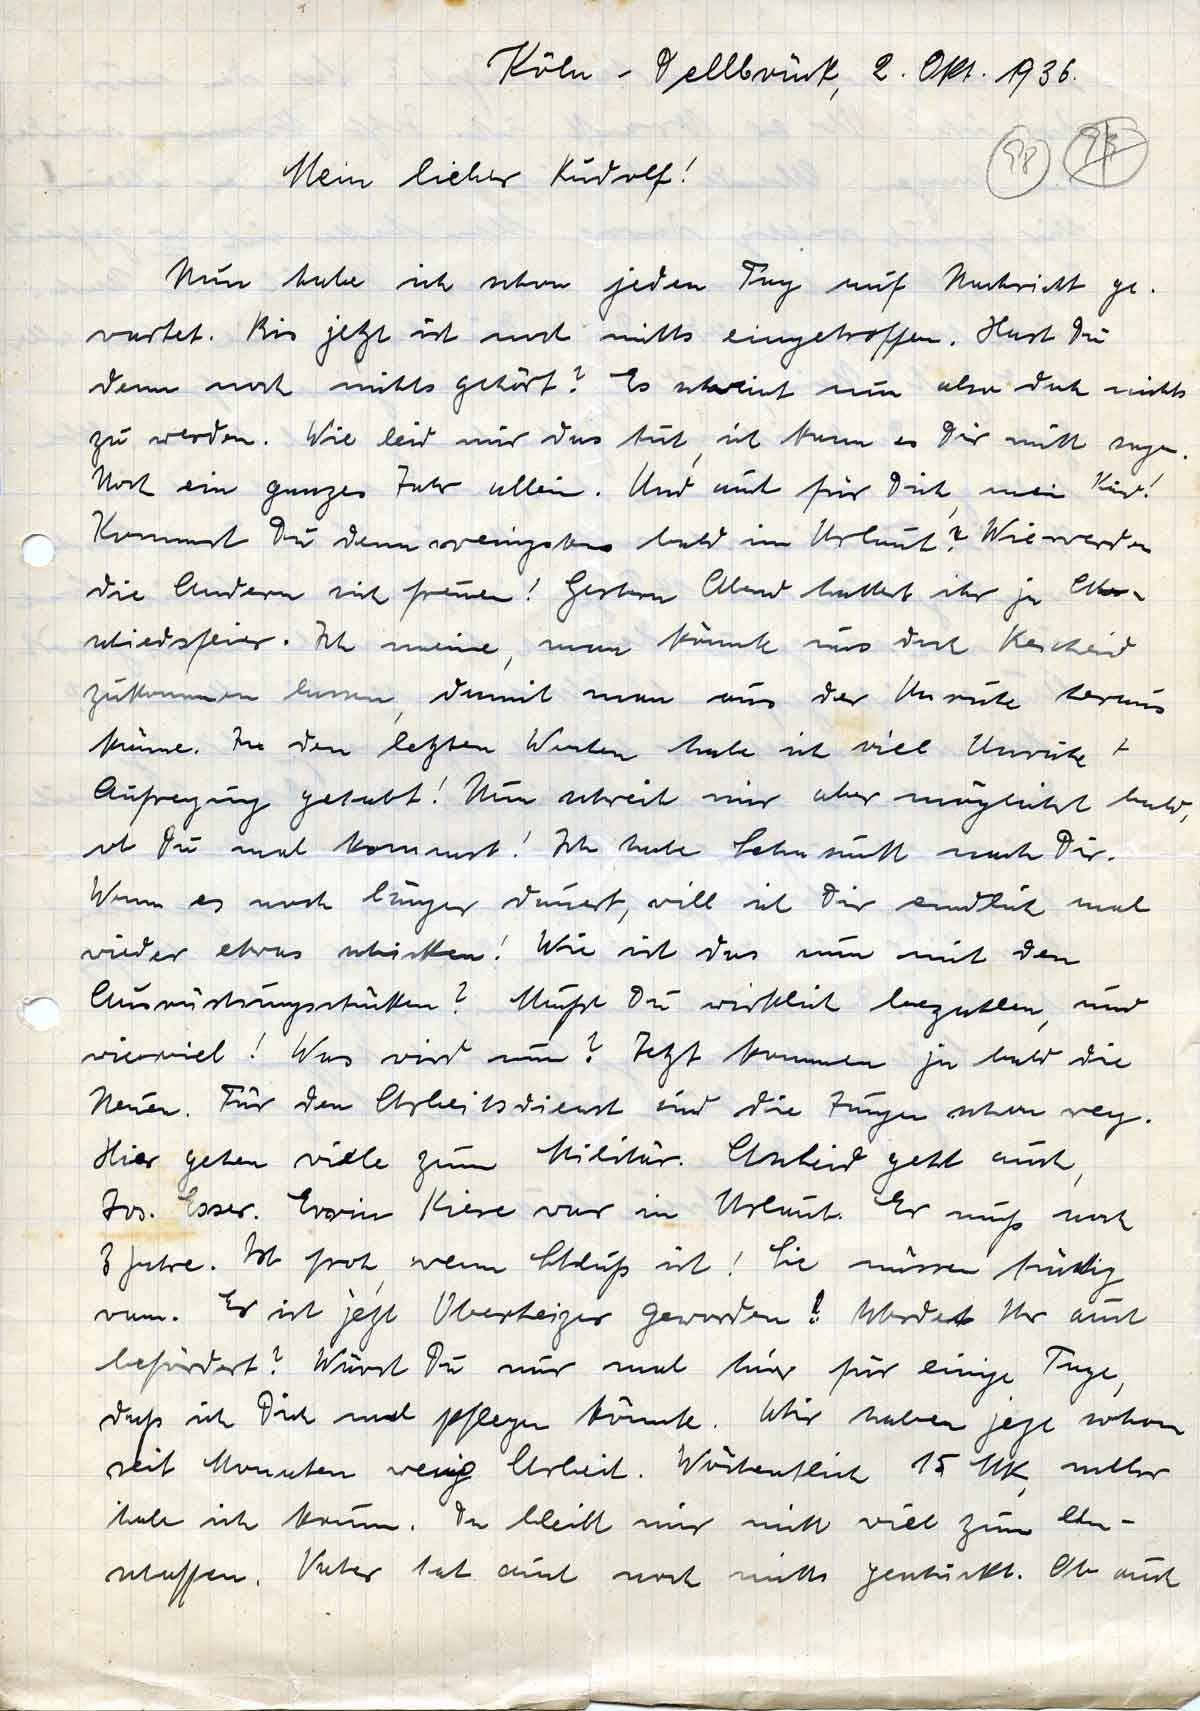 Köln - Dellbrück, 2. Okt. 1936.
98
Mein lieber Rudolf!
Nun habe ich schon jeden Tag auf Nachricht ge-
wartet. Bis jetzt ist noch nichts eingetroffen. Hast Du
denn noch nichts gehört? Es scheint nun also doch nichts
zu werden. Wie leid mir das tut, ich kann es Dir nicht sagen.
Noch ein ganzes Jahr allein. Und auch für Dich, mein Kind!
Kommst Du denn wenigstens bald im Urlaub? Wie werden
die Andern sich freuen! Gestern Abend hattet ihr ja Ab-
schiedsfeier. Ich meine, man könnte uns doch Bescheid
zukommen lassen, damit man aus der Unruhe heraus
käme. In den letzten Wochen habe ich viel Unruhe +
Aufregung gehabt! Nun schreib mir aber möglichst bald,
ob Du mal kommst! Ich habe Sehnsucht nach Dir.
Wenn es noch länger dauert, will ich Dir endlich mal
wieder etwas schicken! Wie ist das nun mit den
Ausrüstungsstücken? Mußt Du wirklich bezahlen, und
wieviel! Was wird nun? Jetzt kommen ja bald die
Neuen. Für den Arbeitsdienst sind die Jungen schon weg.
Hier gehen viele zum Militär. geht auch,
Jos. Esser. Erwin Kiese war in Urlaub. Er muß noch
3 Jahre. Ist froh, wenn Schluß ist! Sie müssen tüchtig
ran. Er ist jetzt Oberheizer geworden! Werdet Ihr auch
befördert? Wärst Du nur mal hier für einige Tage,
daß ich Dich mal pflegen könnte. Wir haben jetzt schon
seit Monaten wenig Arbeit. Wöchentlich 15 MK, mehr
habe ich kaum. Da bleibt mir nicht viel zum An-
schaffen. Vater hat auch noch nichts geschickt. Ob auch